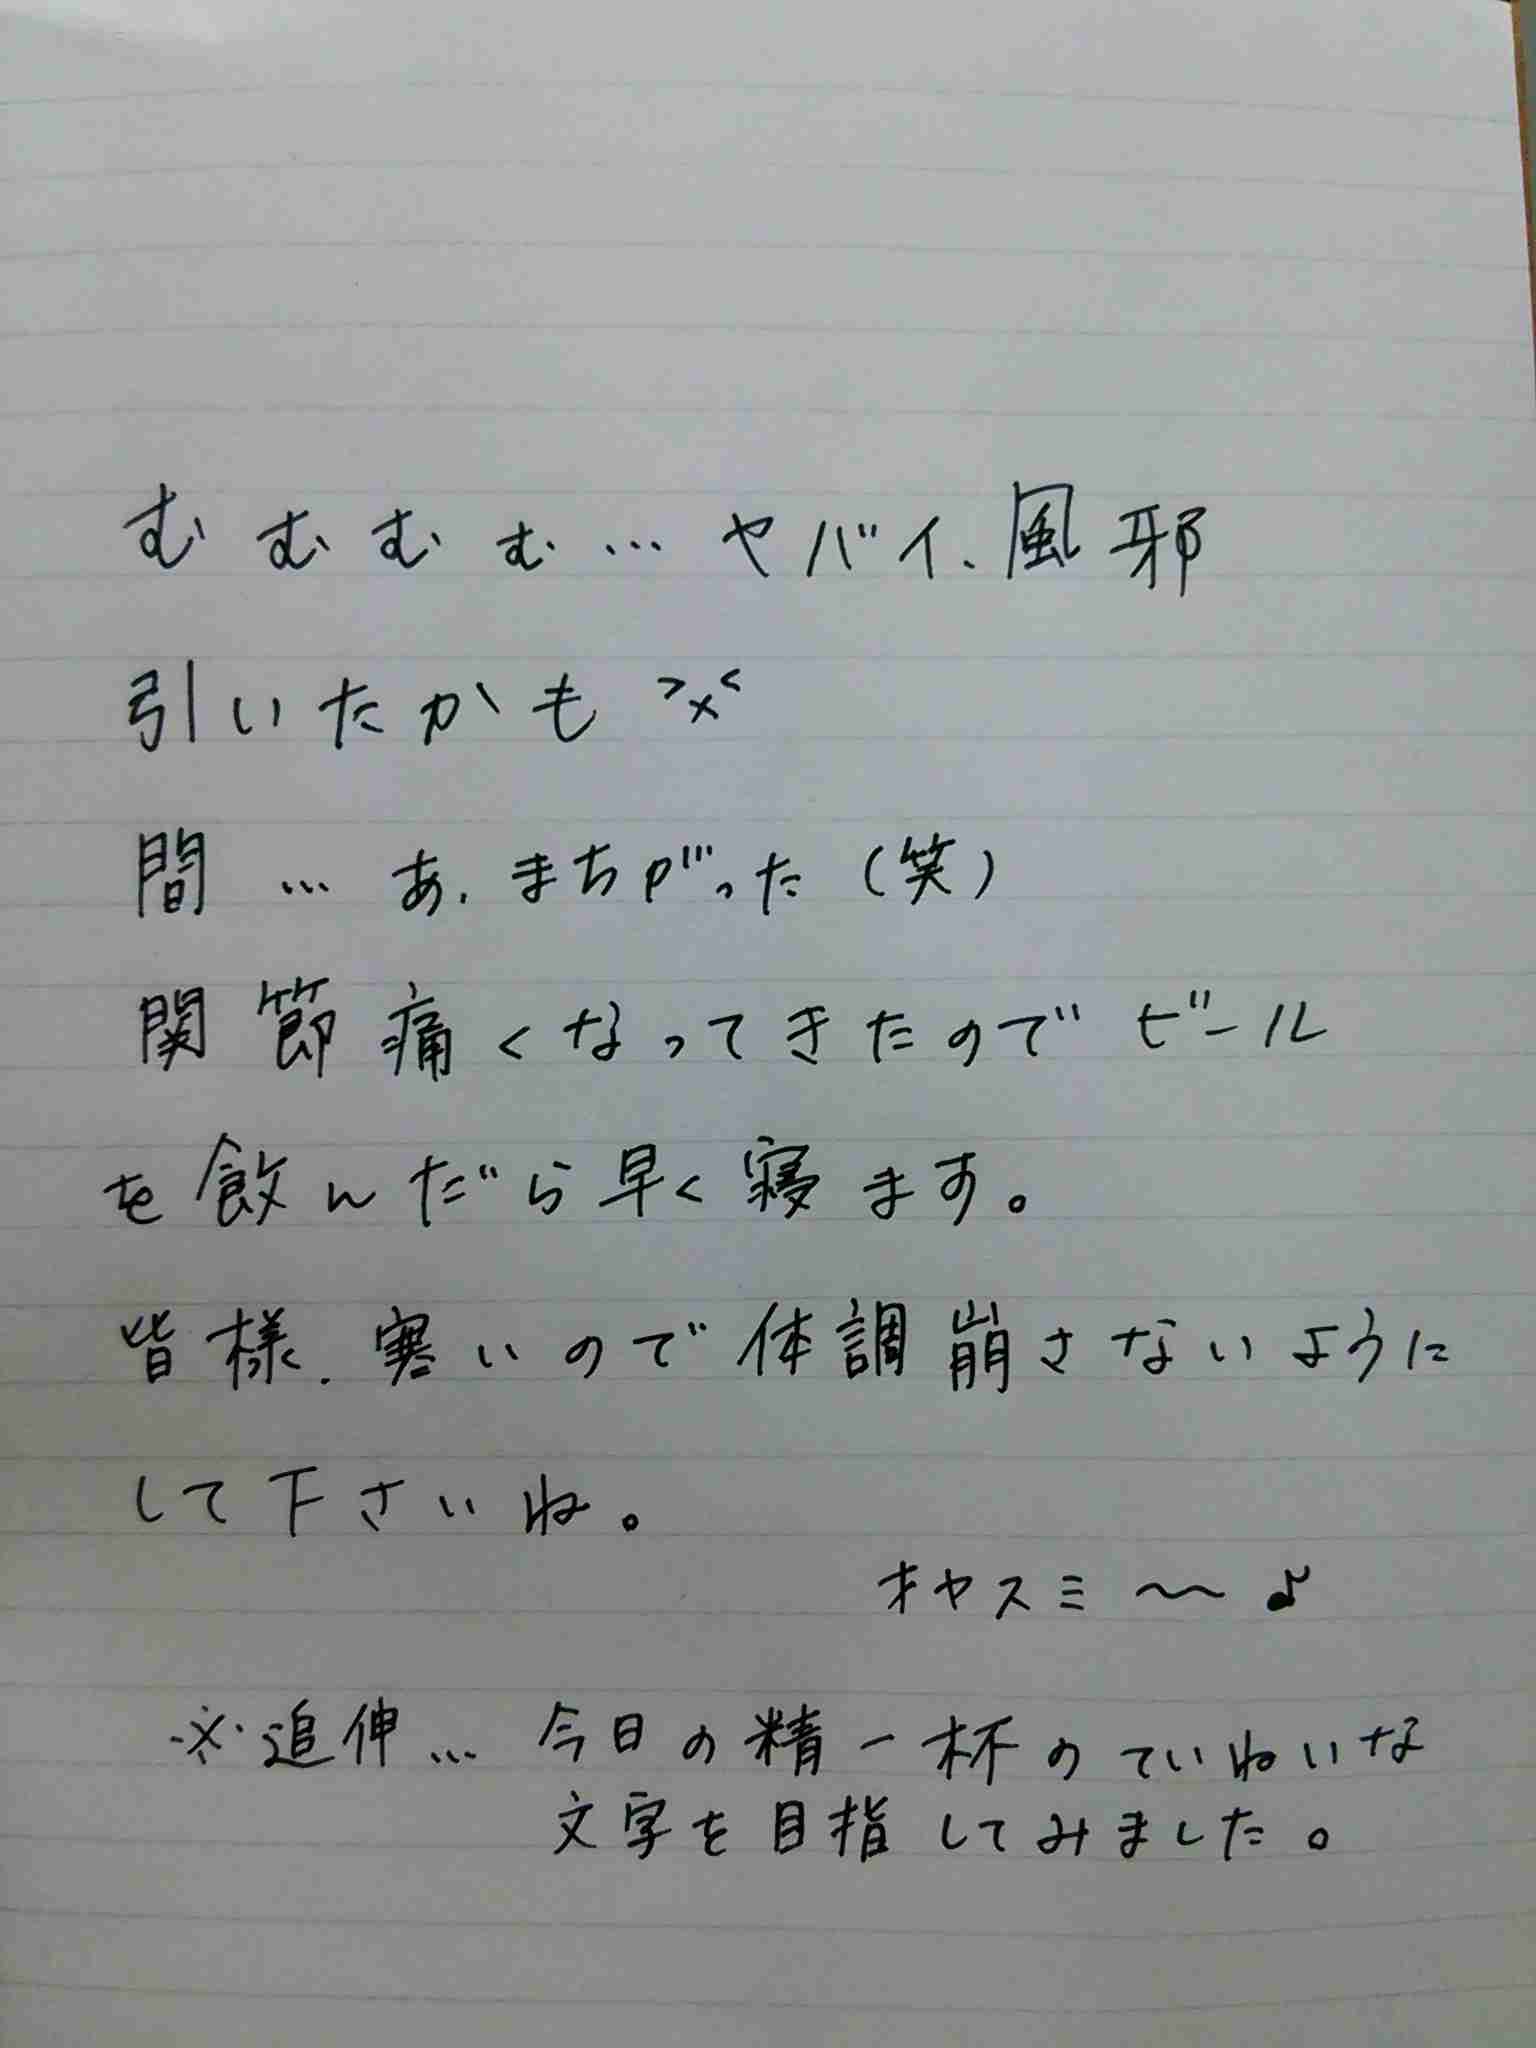 むむむむ…ヤバイ、風邪
引いたかも >x<
間…あ、まちがった(笑)
関節痛くなってきたのでビール
を飲んだら早く寝ます。
皆様、寒いので体調崩さないように
して下さいね。
オヤスミ〜〜♪
※追伸…今日の精一杯のていねいな
文字を目指してみました。